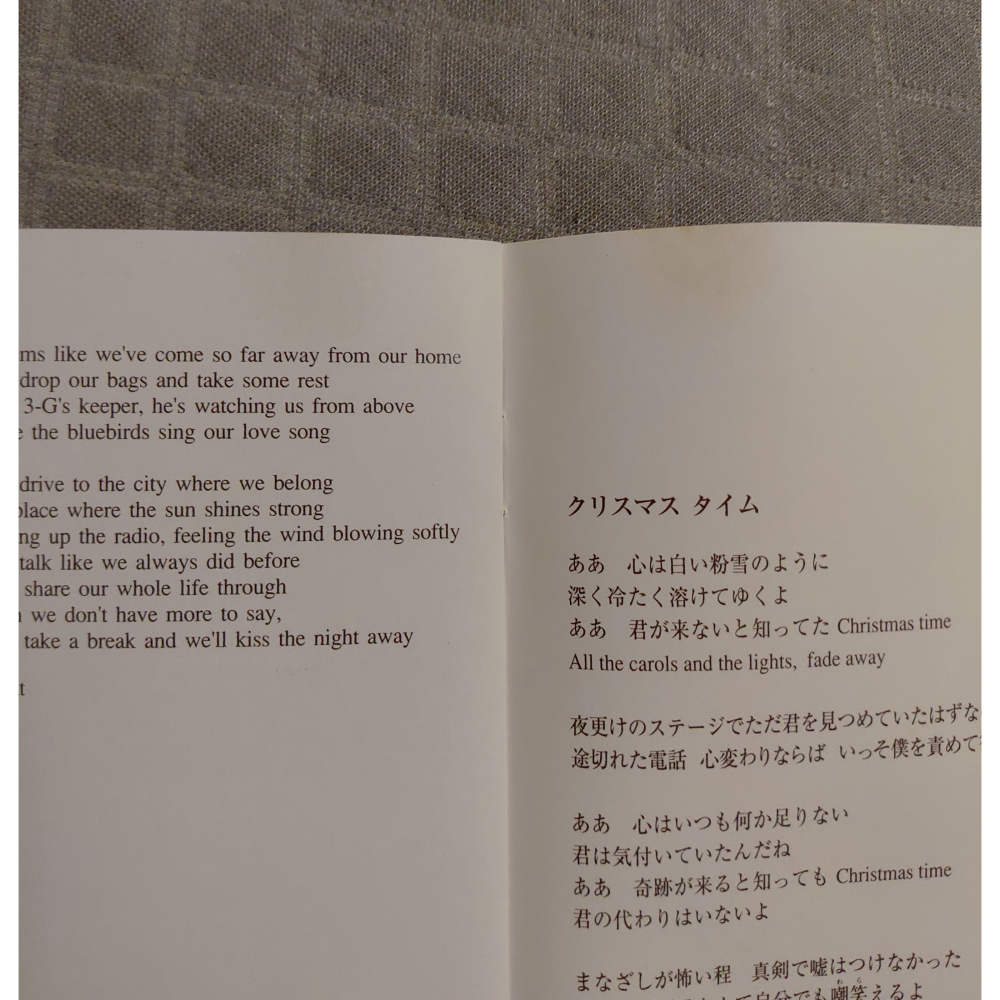 like we've come so far away from our home
drop our bags and take some rest
3-G's keeper, he's watching us from above
the bluebirds sing our love song
drive to the city where we belong
place where the sun shines strong
up the radio, feeling the wind blowing softly
talk like we always did before
share our whole life through
we don't have more to say,
take a break and we'll kiss the night away
クリスマス タイム
ああ 心は白い粉雪のように
深く冷たく溶けてゆくよ
ああ 君が来ないと知ってた Christmas time
All the carols and the lights, fade away
夜更けのステージでただ君を見つめていたはずな
途切れた電話 心変わりならば いっそ僕を責めて
ああ 心はいつも何か足りない
君は気付いていたんだね
ああ 奇跡が来ると知っても Christmas time
君の代わりはいないよ
まなざしが怖い程 真剣で嘘はつけなかった
て自分でも嘲笑えるよ